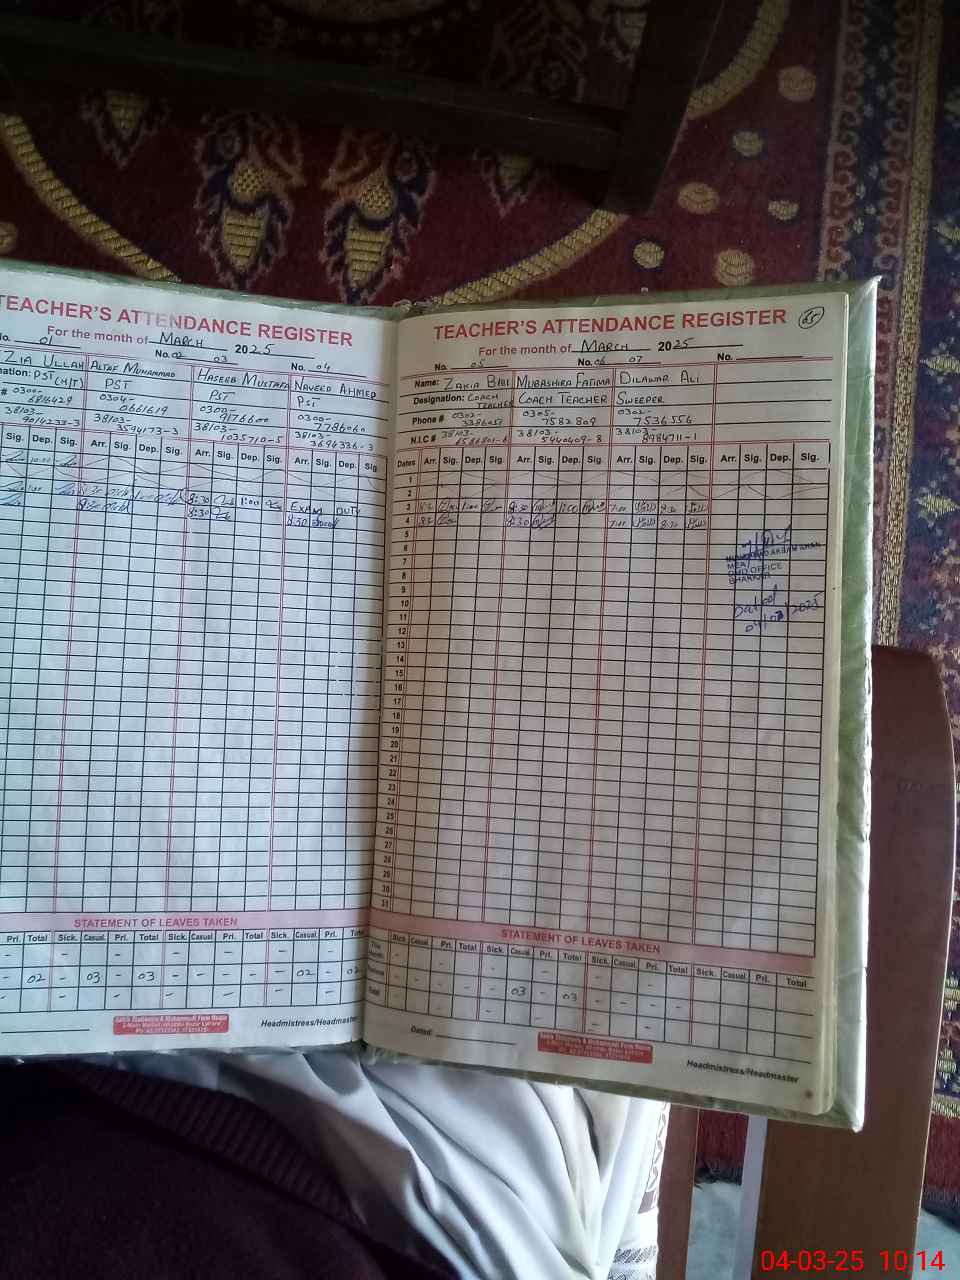 TEACHER'S ATTENDANCE REGISTER
For the month of MARCH 2025
No. 01 No. 02 03 No. 04
ZIA ULLAH ALTAF MUHAMMAD HASEEB MUSTAFA NAVEED AHMED
nation: PST (H/T) PST PST PST
# 0300- 0304- 0300- 0300-
6816429 0661619 9176600 7786060
38103- 38103- 38103- 38103-
9014233-3 3594173-3 1035710-5 3694336-3
Sig. Dep. Sig. Arr. Sig. Dep. Sig. Arr. Sig. Dep. Sig. Arr. Sig. Dep. Sig.
8:30 1:00 EXAM DUTY
8:30 8:30 8:30
STATEMENT OF LEAVES TAKEN
Pri. Total Sick. Casual. Pri. Total Sick. Casual. Pri. Total Sick. Casual. Pri. Total
- - - - - - - - - -
- 02 - 03 - 03 - - - - - 02 - 02
Headmistress/Headmaster
65
TEACHER'S ATTENDANCE REGISTER
For the month of MARCH 2025
No. 05 No. 06 07 No.
Name: ZAKIA BIBI MUBASHIRA FATIMA DILAWAR ALI
Designation: COACH TEACHER COACH TEACHER SWEEPER
Phone # 0302- 0305- 0302-
3386051 7582809 7536556
N.I.C # 38103- 38103- 38103-
6581801-6 5440409-8 8984711-1
Dates Arr. Sig. Dep. Sig. Arr. Sig. Dep. Sig. Arr. Sig. Dep. Sig. Arr. Sig. Dep. Sig.
1
2
3 8:30 1:00 7:00 8:30
4 8:30 7:00 8:30
5
6
7
8
9
10
11
12
13
14
15
16
17
18
19
20
21
22
23
24
25
26
27
28
29
30
31
MEA
DMO OFFICE
BHAKKAR
Dated
04/03/2025
STATEMENT OF LEAVES TAKEN
Sick. Casual. Pri. Total Sick. Casual. Pri. Total Sick. Casual. Pri. Total Sick. Casual. Pri. Total
03 - 03
Dated:
Headmistress/Headmaster
04-03-25 10:14